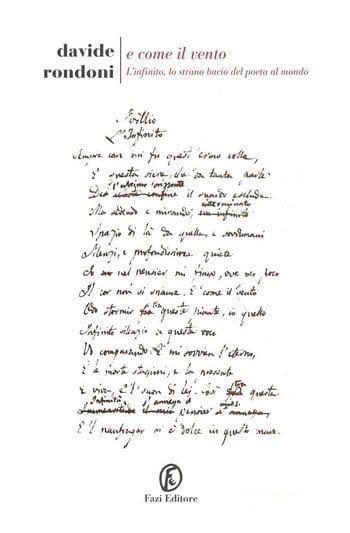 davide rondoni
e come il vento
L'infinito, lo strano bacio del poeta al mondo
Idillio
L'Infinito
Sempre caro mi fu quest'ermo colle,
E questa siepe, che da tanta parte
l'ultimo orizzonte
De il guardo esclude.
interminato
Ma sedendo e mirando, un infinito
Spazio di là da quella, e sovrumani
Silenzi, e profondissima quiete
Io nel pensier mi fingo, ove per poco
Il cor non si spaura. E come il vento
Odo stormir tra queste piante, io quello
Infinito silenzio a questa voce
Vo comparando: E mi sovvien l'eterno,
E le morte stagioni, e la presente
E viva, e 'l suon di lei. Così tra questa
Infinità s'annega il mio
pensier
E 'l naufragar m'è dolce in questo mare.
Fazi Editore